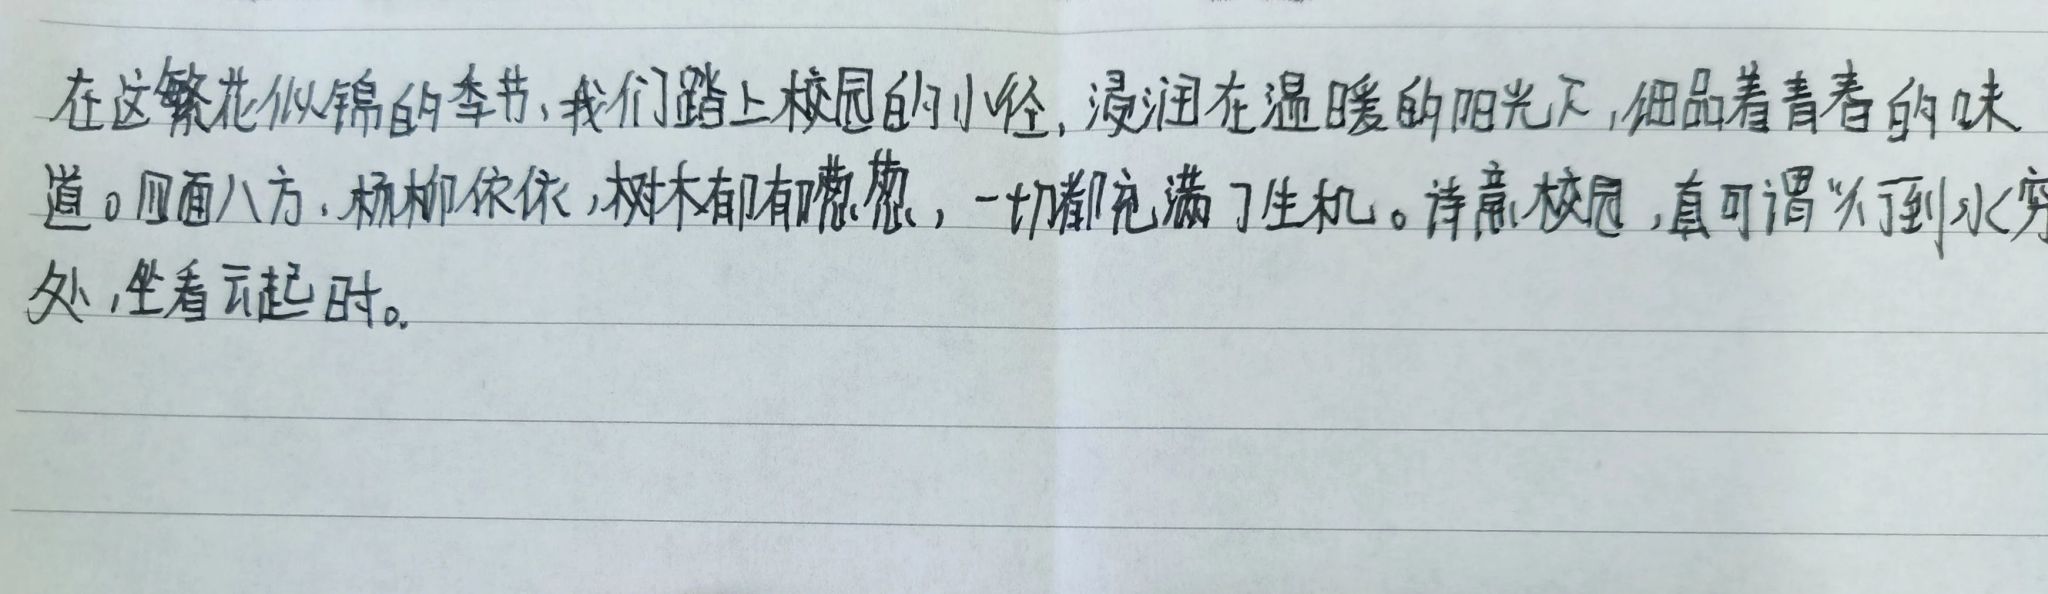 在这繁花似锦的季节,我们踏上校园的小径,浸润在温暖的阳光下,细品着青春的味
道。四面八方,杨柳依依,树木郁郁葱葱,一切都充满了生机。诗意校园,真可谓“行到水穷
处,坐看云起时。